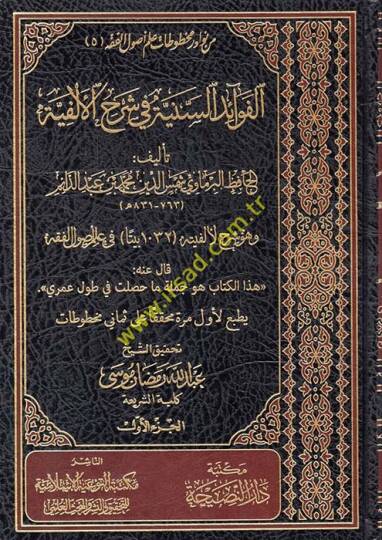 من نوادر مخطوطات علم أصول الفقه (٥)
الفوائد السنية في شرح الألفية
تأليف:
الحافظ البرماوي شمس الدين محمد بن عبد الدايم
(٧٦٣-٨٣١هـ)
وهو شرح لألفيته (١٠٣٢ بيتا) في علم أصول الفقه
قال عنه:
«هذا الكتاب هو جملة ما حصلت في طول عمري».
يطبع لأول مرة محققا على ثماني مخطوطات
تحقيق الشيخ
عبد الله رمضان موسى
كلية الشريعة
الجزء الأول
مكتبة
دار النصيحة
الناشر
مكتبة التوعية الإسلامية
للتحقيق والنشر والبحث العلمي
www.irsad.com.tr